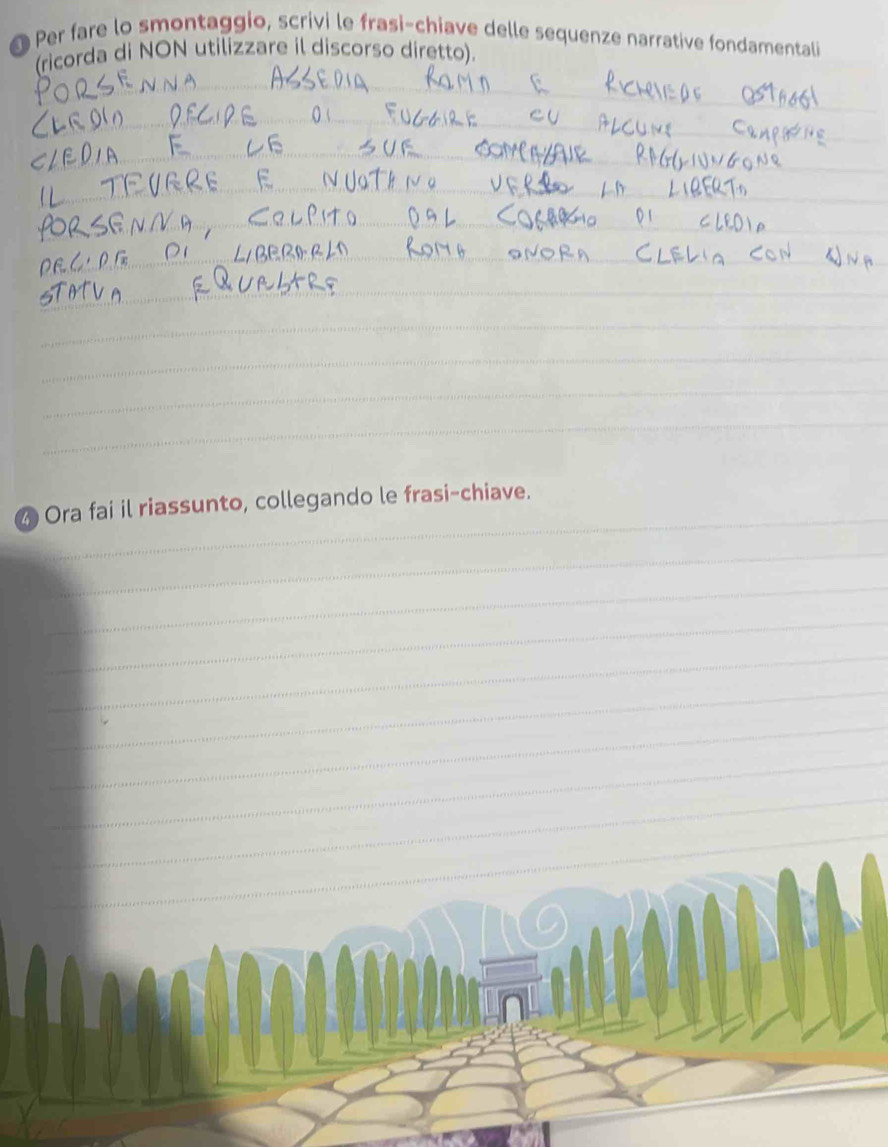 3 Per fare lo smontaggio, scrivi le frasi-chiave delle sequenze narrative fondamentali
(ricorda di NON utilizzare il discorso diretto).
PORSENNA ASSEDIA ROMA E RICHIEDE OSTAGGI
CLEDIA DECIDE DI FUGGIRE CU ALCUNE COMPAGNE
CLEDIA E LE SUE COMPAGNE RAGGIUNGONO
IL TEVERE E NUOTANO VERSO LA LIBERTA
PORSENNA, COLPITO DAL CORAGGIO DI CLEDIA
DECIDE DI LIBERARLA ROMA ONORA CLELIA CON UNA
STATVA EQUESTRE
4 Ora fai il riassunto, collegando le frasi-chiave.